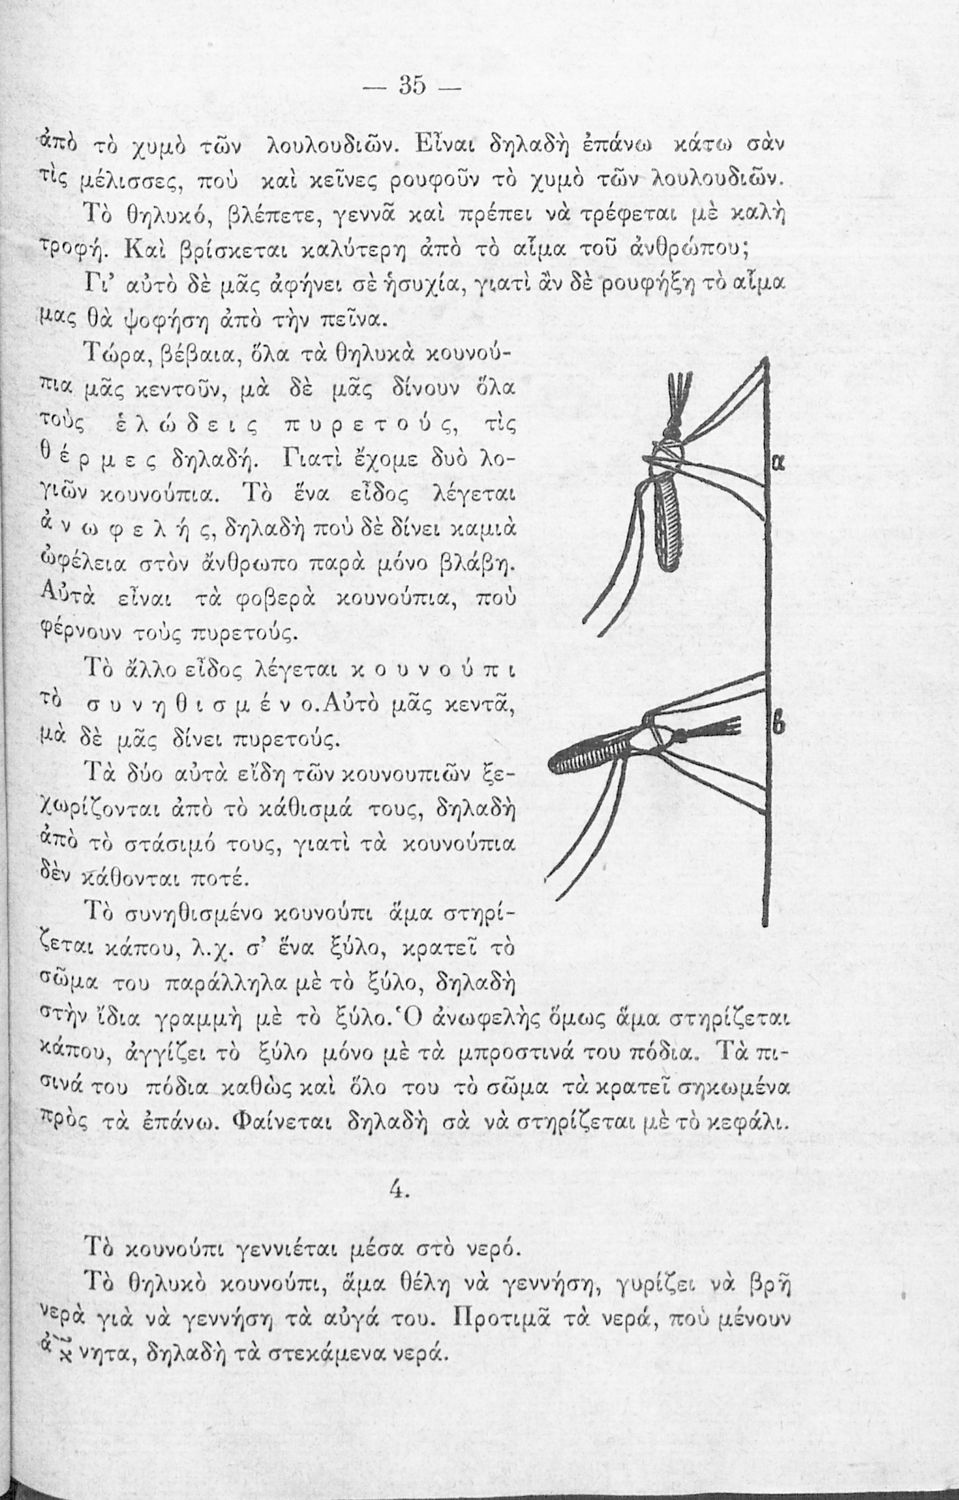 — 35 —
ἀπὸ τὸ χυμὸ τῶν λουλουδιῶν. Εἶναι δηλαδὴ ἐπάνω κάτω σὰν
τὶς μέλισσες, ποὺ καὶ κεῖνες ρουφοῦν τὸ χυμὸ τῶν λουλουδιῶν.
Τὸ θηλυκό, βλέπετε, γεννᾶ καὶ πρέπει νὰ τρέφεται μὲ καλὴ
τροφή. Καὶ βρίσκεται καλύτερη ἀπὸ τὸ αἷμα τοῦ ἀνθρώπου;
Γι’ αὐτὸ δὲ μᾶς ἀφήνει σὲ ἡσυχία, γιατὶ ἂν δὲ ρουφήξη τὸ αἷμα
μας θὰ ψοφήση ἀπὸ τὴν πεῖνα.
Τώρα, βέβαια, ὅλα τὰ θηλυκὰ κουνού-
πια μᾶς κεντοῦν, μὰ δὲ μᾶς δίνουν ὅλα
τοὺς ἑλώδεις πυρετούς, τὶς
θέρμες δηλαδή. Γιατὶ ἔχομε δυὸ λο-
γιῶν κουνούπια. Τὸ ἕνα εἶδος λέγεται
ἀνωφελής, δηλαδὴ ποὺ δὲ δίνει καμιὰ
ὠφέλεια στὸν ἄνθρωπο παρὰ μόνο βλάβη.
Αὐτὰ εἶναι τὰ φοβερὰ κουνούπια, ποὺ
φέρνουν τοὺς πυρετούς.
Τὸ ἄλλο εἶδος λέγεται κουνούπι
τὸ συνηθισμένο. Αὐτὸ μᾶς κεντᾶ,
μὰ δὲ μᾶς δίνει πυρετούς.
Τὰ δύο αὐτὰ εἴδη τῶν κουνουπιῶν ξε-
χωρίζονται ἀπὸ τὸ κάθισμά τους, δηλαδὴ
ἀπὸ τὸ στάσιμό τους, γιατὶ τὰ κουνούπια
δὲν κάθονται ποτέ.
Τὸ συνηθισμένο κουνούπι ἅμα στηρί-
ζεται κάπου, λ.χ. σ’ ἕνα ξύλο, κρατεῖ τὸ
σῶμα του παράλληλα μὲ τὸ ξύλο, δηλαδὴ
στὴν ἴδια γραμμὴ μὲ τὸ ξύλο. Ὁ ἀνωφελὴς ὅμως ἅμα στηρίζεται
κάπου, ἀγγίζει τὸ ξύλο μόνο μὲ τὰ μπροστινά του πόδια. Τὰ πι-
σινά του πόδια καθὼς καὶ ὅλο του τὸ σῶμα τὰ κρατεῖ σηκωμένα
πρὸς τὰ ἐπάνω. Φαίνεται δηλαδὴ σὰ νὰ στηρίζεται μὲ τὸ κεφάλι.
α
β
4.
Τὸ κουνούπι γεννιέται μέσα στὸ νερό.
Τὸ θηλυκὸ κουνούπι, ἅμα θέλη νὰ γεννήση, γυρίζει νὰ βρῆ
νερὰ γιὰ νὰ γεννήση τὰ αὐγά του. Προτιμᾶ τὰ νερά, ποὺ μένουν
δηλαδὴ τὰ στεκάμενα νερά.